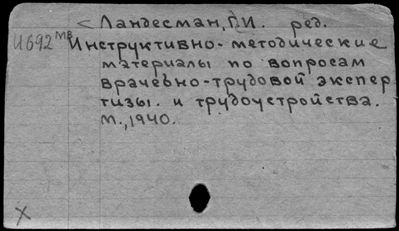 < Ландесман, Г.И. ред.
И692 мв Инструктивно-методические
материалы по вопросам
врачебно-трудовой экспер
тизы. и трудоустройства.
М., 1940.
X